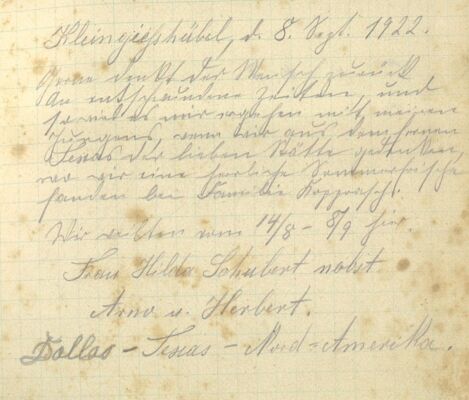 Kleingießhübel, d. 8. Sept. 1922.
Gerne denkt der Mensch zurück
An entschwundene Zeiten, und
so wird es mir ergehen mit meinen
Jungens, wenn wir aus dem fernen
Texas der lieben Stätte gedenken,
wo wir eine herrliche Sommerfrische
fanden bei Familie
Wir weilten vom 14/8 - 8/9 hier.
Frau Hilda Schubert nebst
Arno u. Herbert.
Dallas - Texas - Nord=Amerika.